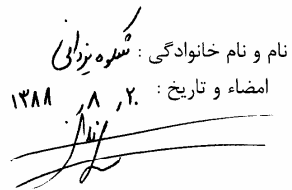 نام و نام خانوادگی : شکوه یزدانی
امضاء و تاریخ : ۱۳۸۸ ٫ ۸ ٫ ۲۰